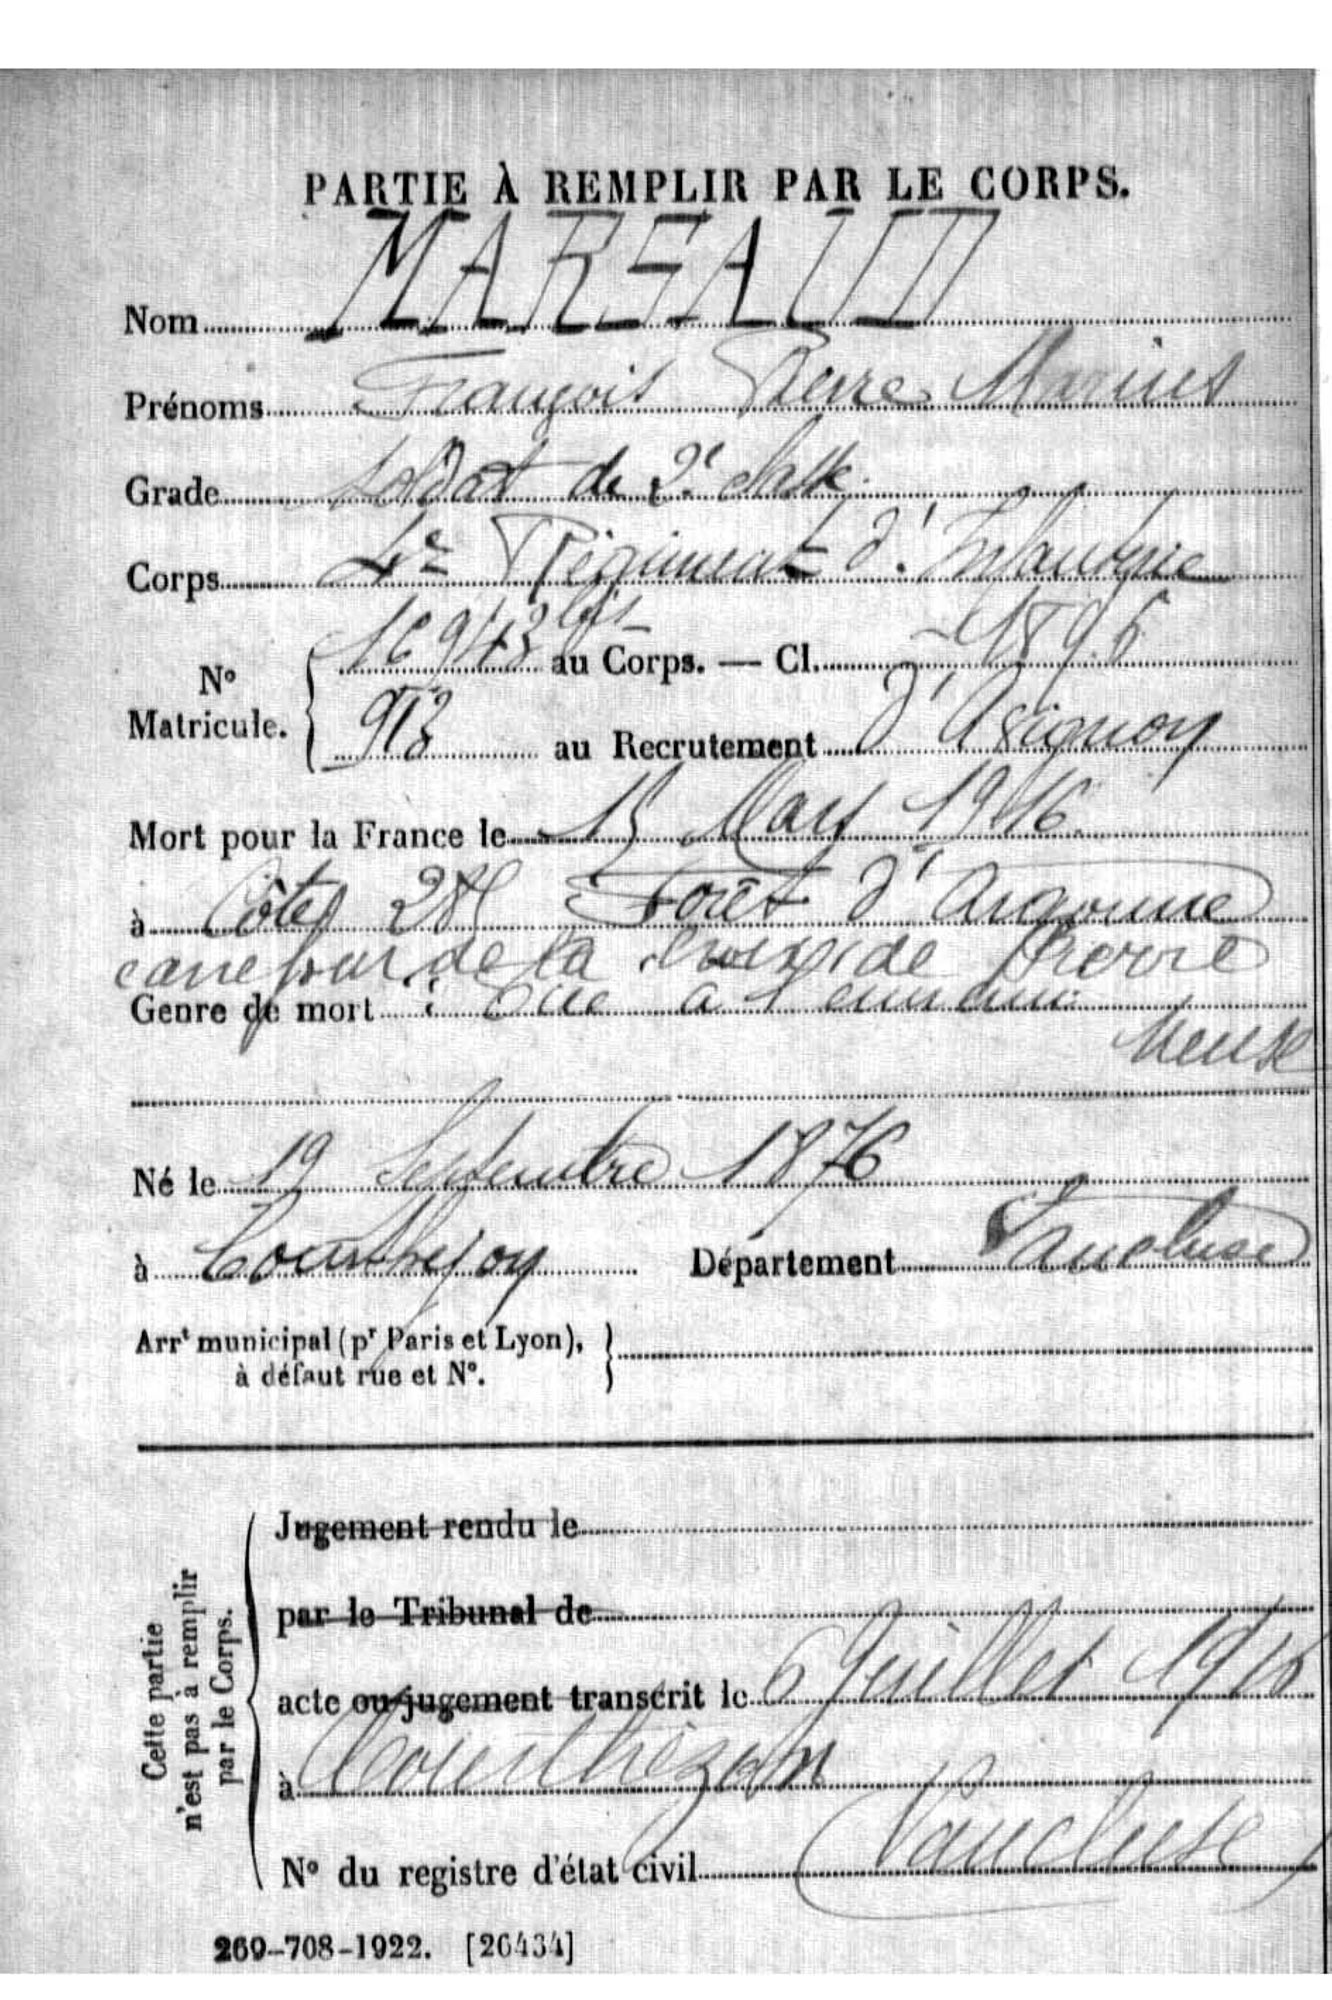 PARTIE À REMPLIR PAR LE CORPS.
Nom MARSAUD
Prénoms François Pierre Marius
Grade Soldat de 2e classe
Corps 4e Régiment d'Infanterie
16943 bis au Corps. — Cl. 1896
N° Matricule.
913 au Recrutement d'Avignon
Mort pour la France le 15 Mars 1916
à Côte 285 Forêt d'Argonne
carrefour de la croix de Pierre
Genre de mort : Tué à l'ennemi
Meuse
Né le 19 Septembre 1876
à Courthejon Département Vaucluse
Arrt municipal (pr Paris et Lyon),
à défaut rue et N°.
Cette partie
n'est pas à remplir
par le Corps.
Jugement rendu le
par le Tribunal de
acte ou jugement transcrit le 6 Juillet 1916
à Courthézon
N° du registre d'état civil Vaucluse
269-708-1922. [26434]